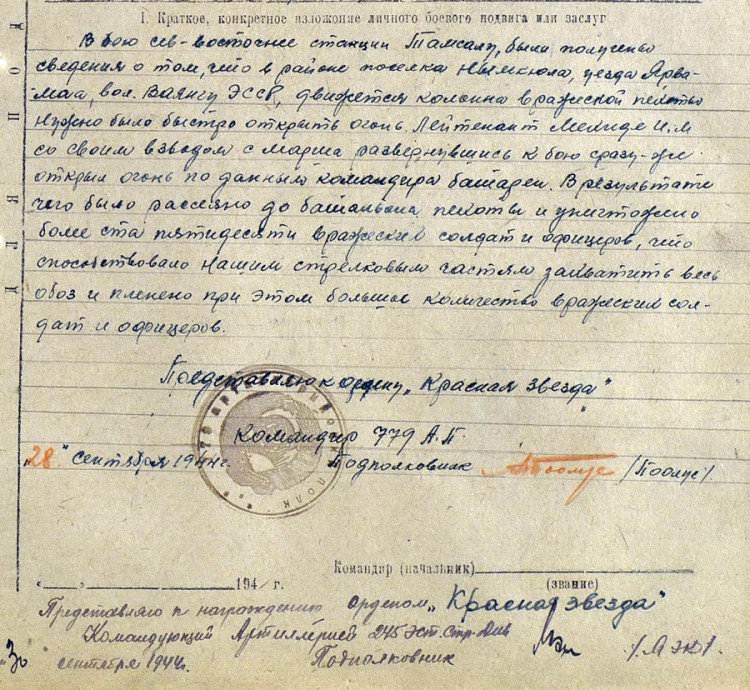 I. Краткое, конкретное изложение личного боевого подвига или заслуг
В бою сев-восточнее станции Тамсалу, были получены
сведения о том, что в районе поселка Нымкюла, уезда Ярва-
маа, вол. Ваянгу ЭССР, движется колонна вражеской пехоты
нужно было быстро открыть огонь. Лейтенант И.М
со своим взводом с марша развернувшись к бою сразу-же
открыл огонь по данным командира батареи. В результати
чего было рассеяно до батальона пехоты и уничтожено
более ста пятидесяти вражеских солдат и офицеров, что
способствовало нашим стрелковым частям захватить весь
обоз и пленено при этом большое количество вражеских сол-
дат и офицеров.
Представляю к ордену „Красная звезда"
Командир 779 А.П.
„28" сентября 1944г. Подполковник /Поолус/.
Командир (начальник)
„ " 194 г. (звание)
Представляю к награждению орденом „Красная звезда"
Командующий Артиллерией 249 Эст.Стр.Див
„30" сентября 1944г. Подполковник /.Аэк/.